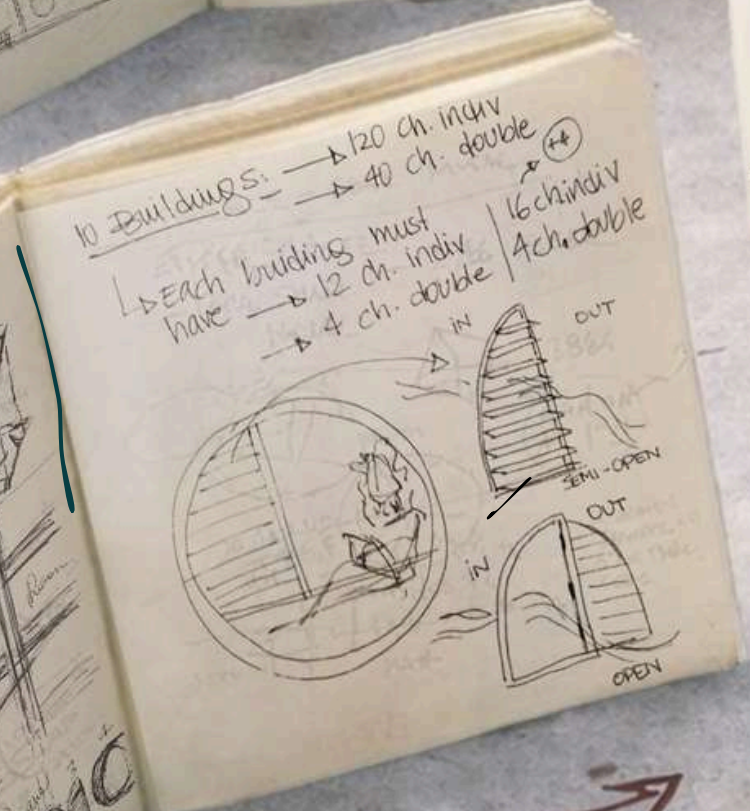 10 Buildings: → 120 ch. indiv
→ 40 ch. double
+4
Each building must
have → 12 ch. indiv
→ 4 ch. double
16 ch indiv
4 ch. double
IN
OUT
SEMI-OPEN
OUT
IN
OPEN